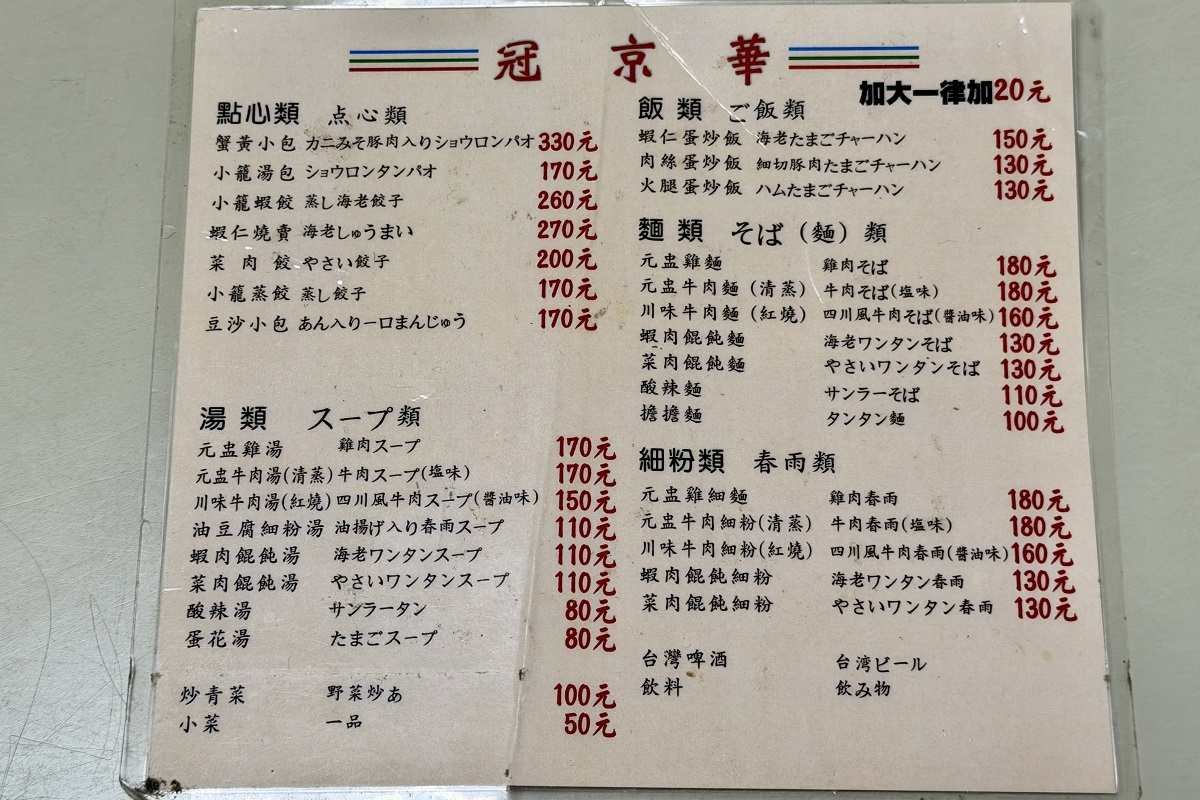 冠京華
加大一律加20元
點心類 点心類
蟹黃小包 カニみそ豚肉入りショウロンパオ 330元
小籠湯包 ショウロンタンパオ 170元
小籠蝦餃 蒸し海老餃子 260元
蝦仁燒賣 海老しゅうまい 270元
菜肉餃 やさい餃子 200元
小籠蒸餃 蒸し餃子 170元
豆沙小包 あん入り一口まんじゅう 170元
湯類 スープ類
元盅雞湯 雞肉スープ 170元
元盅牛肉湯(清蒸) 牛肉スープ(塩味) 170元
川味牛肉湯(紅燒) 四川風牛肉スープ(醬油味) 150元
油豆腐細粉湯 油揚げ入り春雨スープ 110元
蝦肉餛飩湯 海老ワンタンスープ 110元
菜肉餛飩湯 やさいワンタンスープ 110元
酸辣湯 サンラータン 80元
蛋花湯 たまごスープ 80元
炒青菜 野菜炒あ 100元
小菜 一品 50元
飯類 ご飯類
蝦仁蛋炒飯 海老たまごチャーハン 150元
肉絲蛋炒飯 細切豚肉たまごチャーハン 130元
火腿蛋炒飯 ハムたまごチャーハン 130元
麵類 そば（麵）類
元盅雞麵 雞肉そば 180元
元盅牛肉麵(清蒸) 牛肉そば(塩味) 180元
川味牛肉麵(紅燒) 四川風牛肉そば(醬油味) 160元
蝦肉餛飩麵 海老ワンタンそば 130元
菜肉餛飩麵 やさいワンタンそば 130元
酸辣麵 サンラーそば 110元
擔擔麵 タンタン麵 100元
細粉類 春雨類
元盅雞細麵 雞肉春雨 180元
元盅牛肉細粉(清蒸) 牛肉春雨(塩味) 180元
川味牛肉細粉(紅燒) 四川風牛肉春雨(醬油味) 160元
蝦肉餛飩細粉 海老ワンタン春雨 130元
菜肉餛飩細粉 やさいワンタン春雨 130元
台灣啤酒 台湾ビール
飲料 飲み物